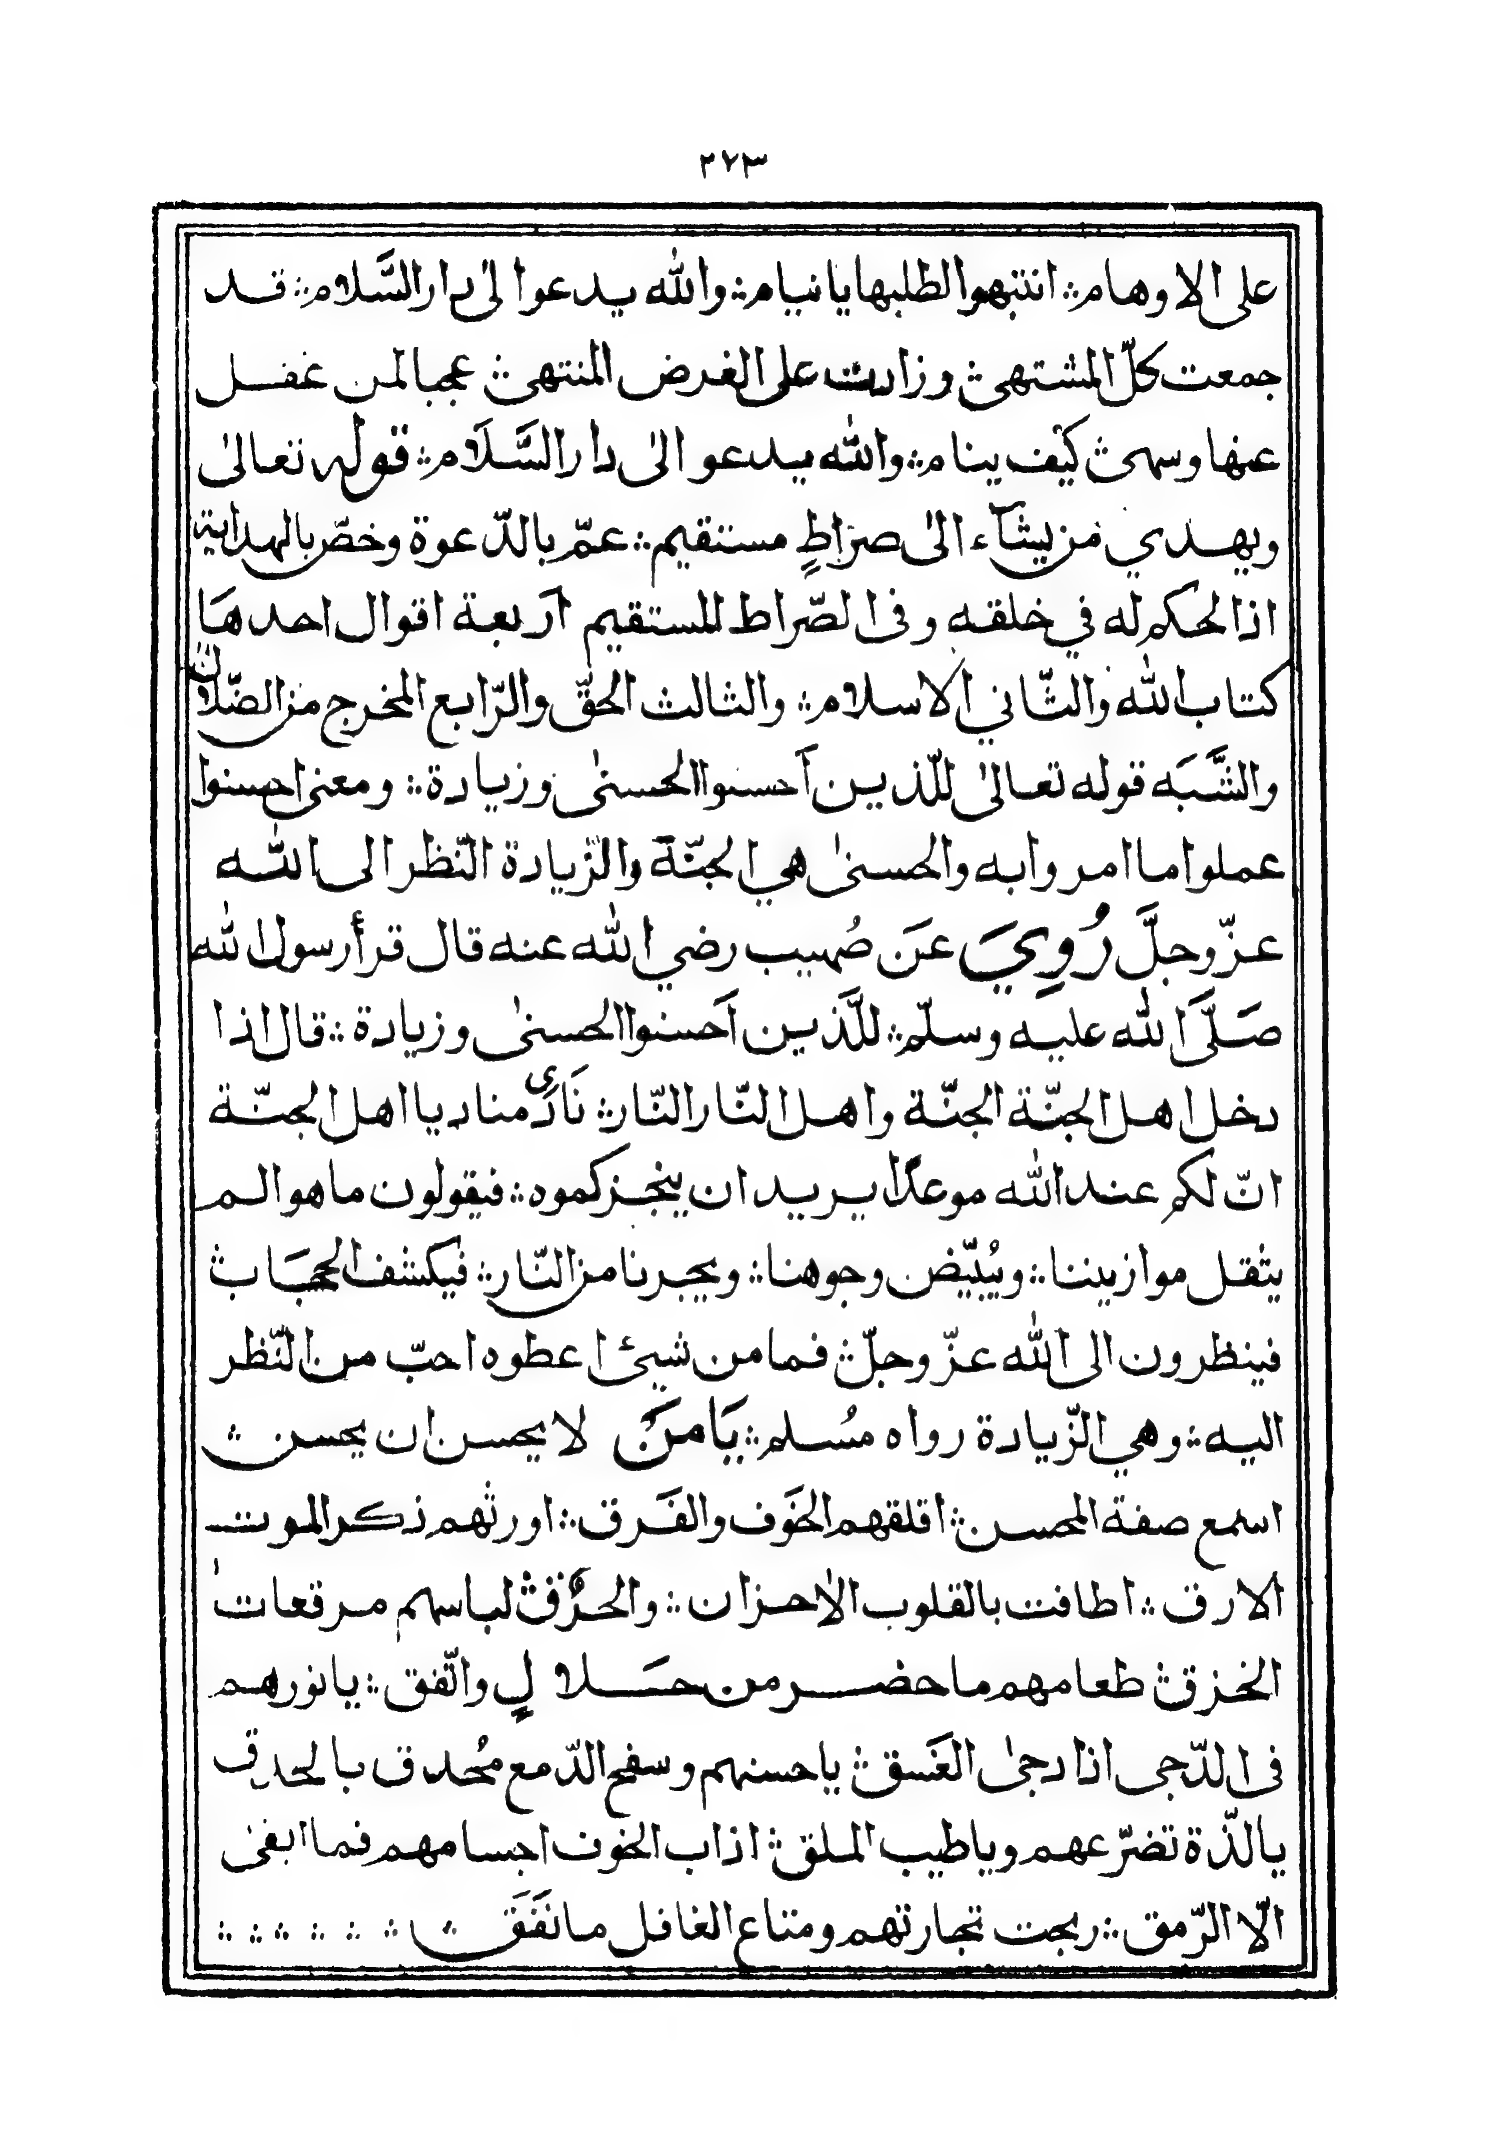 ٢٧٣
على الاوهام ؞ انتبهوا لطلبها يا نيام ؞ والله يدعوا لى دار السَّلام ؞ قد
جمعت كلّ المشتهى ؞ وزادت على الغرض المنتهى ؞ عجبا لمن غفل
عنها وسهى ؞ كيف ينام ؞ والله يدعو الى دار السَّلَام ؞ قوله تعالى
ويهدي من يشآء الى صراطٍ مستقيم ؞ عمّ بالدّعوة وخصّ بالهداية
اذا لحكم له في خلقه وفى الصّراط المستقيم اربعة اقوال احدها
كتاب الله والثّاني الاسلام ؞ والثالث الحقّ والرّابع المخرج من الضّلالات
والشَّبَه قوله تعالى للّذين اَحسنوا الحسنى وزيادة ؞ ومعنى احسنوا
عملوا ما امر وابه والحسنى هي الجنّة والزّيادة النّظر الى الله
عزّ وجلَّ رُوِيَ عَن صُهيب رضي الله عنه قال قرأ رسول الله
صَلَّى الله عليه وسلّم ؞ للَّذين اَحسنوا الحسنى وزيادة ؞ قال اذا
دخل اهل الجنّة الجنّة واهل النّار النّار ؞ نَادَى مناد يا اهل الجنّة
انّ لكم عند الله موعدًا يريد ان ينجزكموه ؞ فيقولون ما هو الم
يثقل موازيننا ؞ ويُبيّض وجوهنا ؞ ويجرنا من النّار ؞ فيكشف الحجَاب ؞
فينظرون الى الله عزّ وجلّ ؞ فما من شيئ اعطوه احبّ من النّظر
اليه ؞ وهي الزّيادة رواه مُسلم ؞ يَا مَنْ لا يحسن ان يحسن ؞
اسمع صفة المحسن ؞ اقلقهم الخَوف والفَرق ؞ اورثهم ذكر الموت
الارق ؞ اطافت بالقلوب الاحزان ؞ والحُرَق ؞ لباسهم مرقعات
الخزق ؞ طعامهم ما حضر من حَلالٍ واتّفق ؞ يا نورهم
فى الدّجى اذا دجى الغَسق ؞ يا حسنهم وسفح الدّمع مُحدق بالحدق
يا لذّة تضرّعهم ويا طيب الملق ؞ اذاب الخوف اجسامهم فما ابقى
الّا الرّمق ؞ ربحت تجارتهم ومتاع الغافل ما نَفَقَ ؞ ؞ ؞ ؞ ؞ ؞ ؞